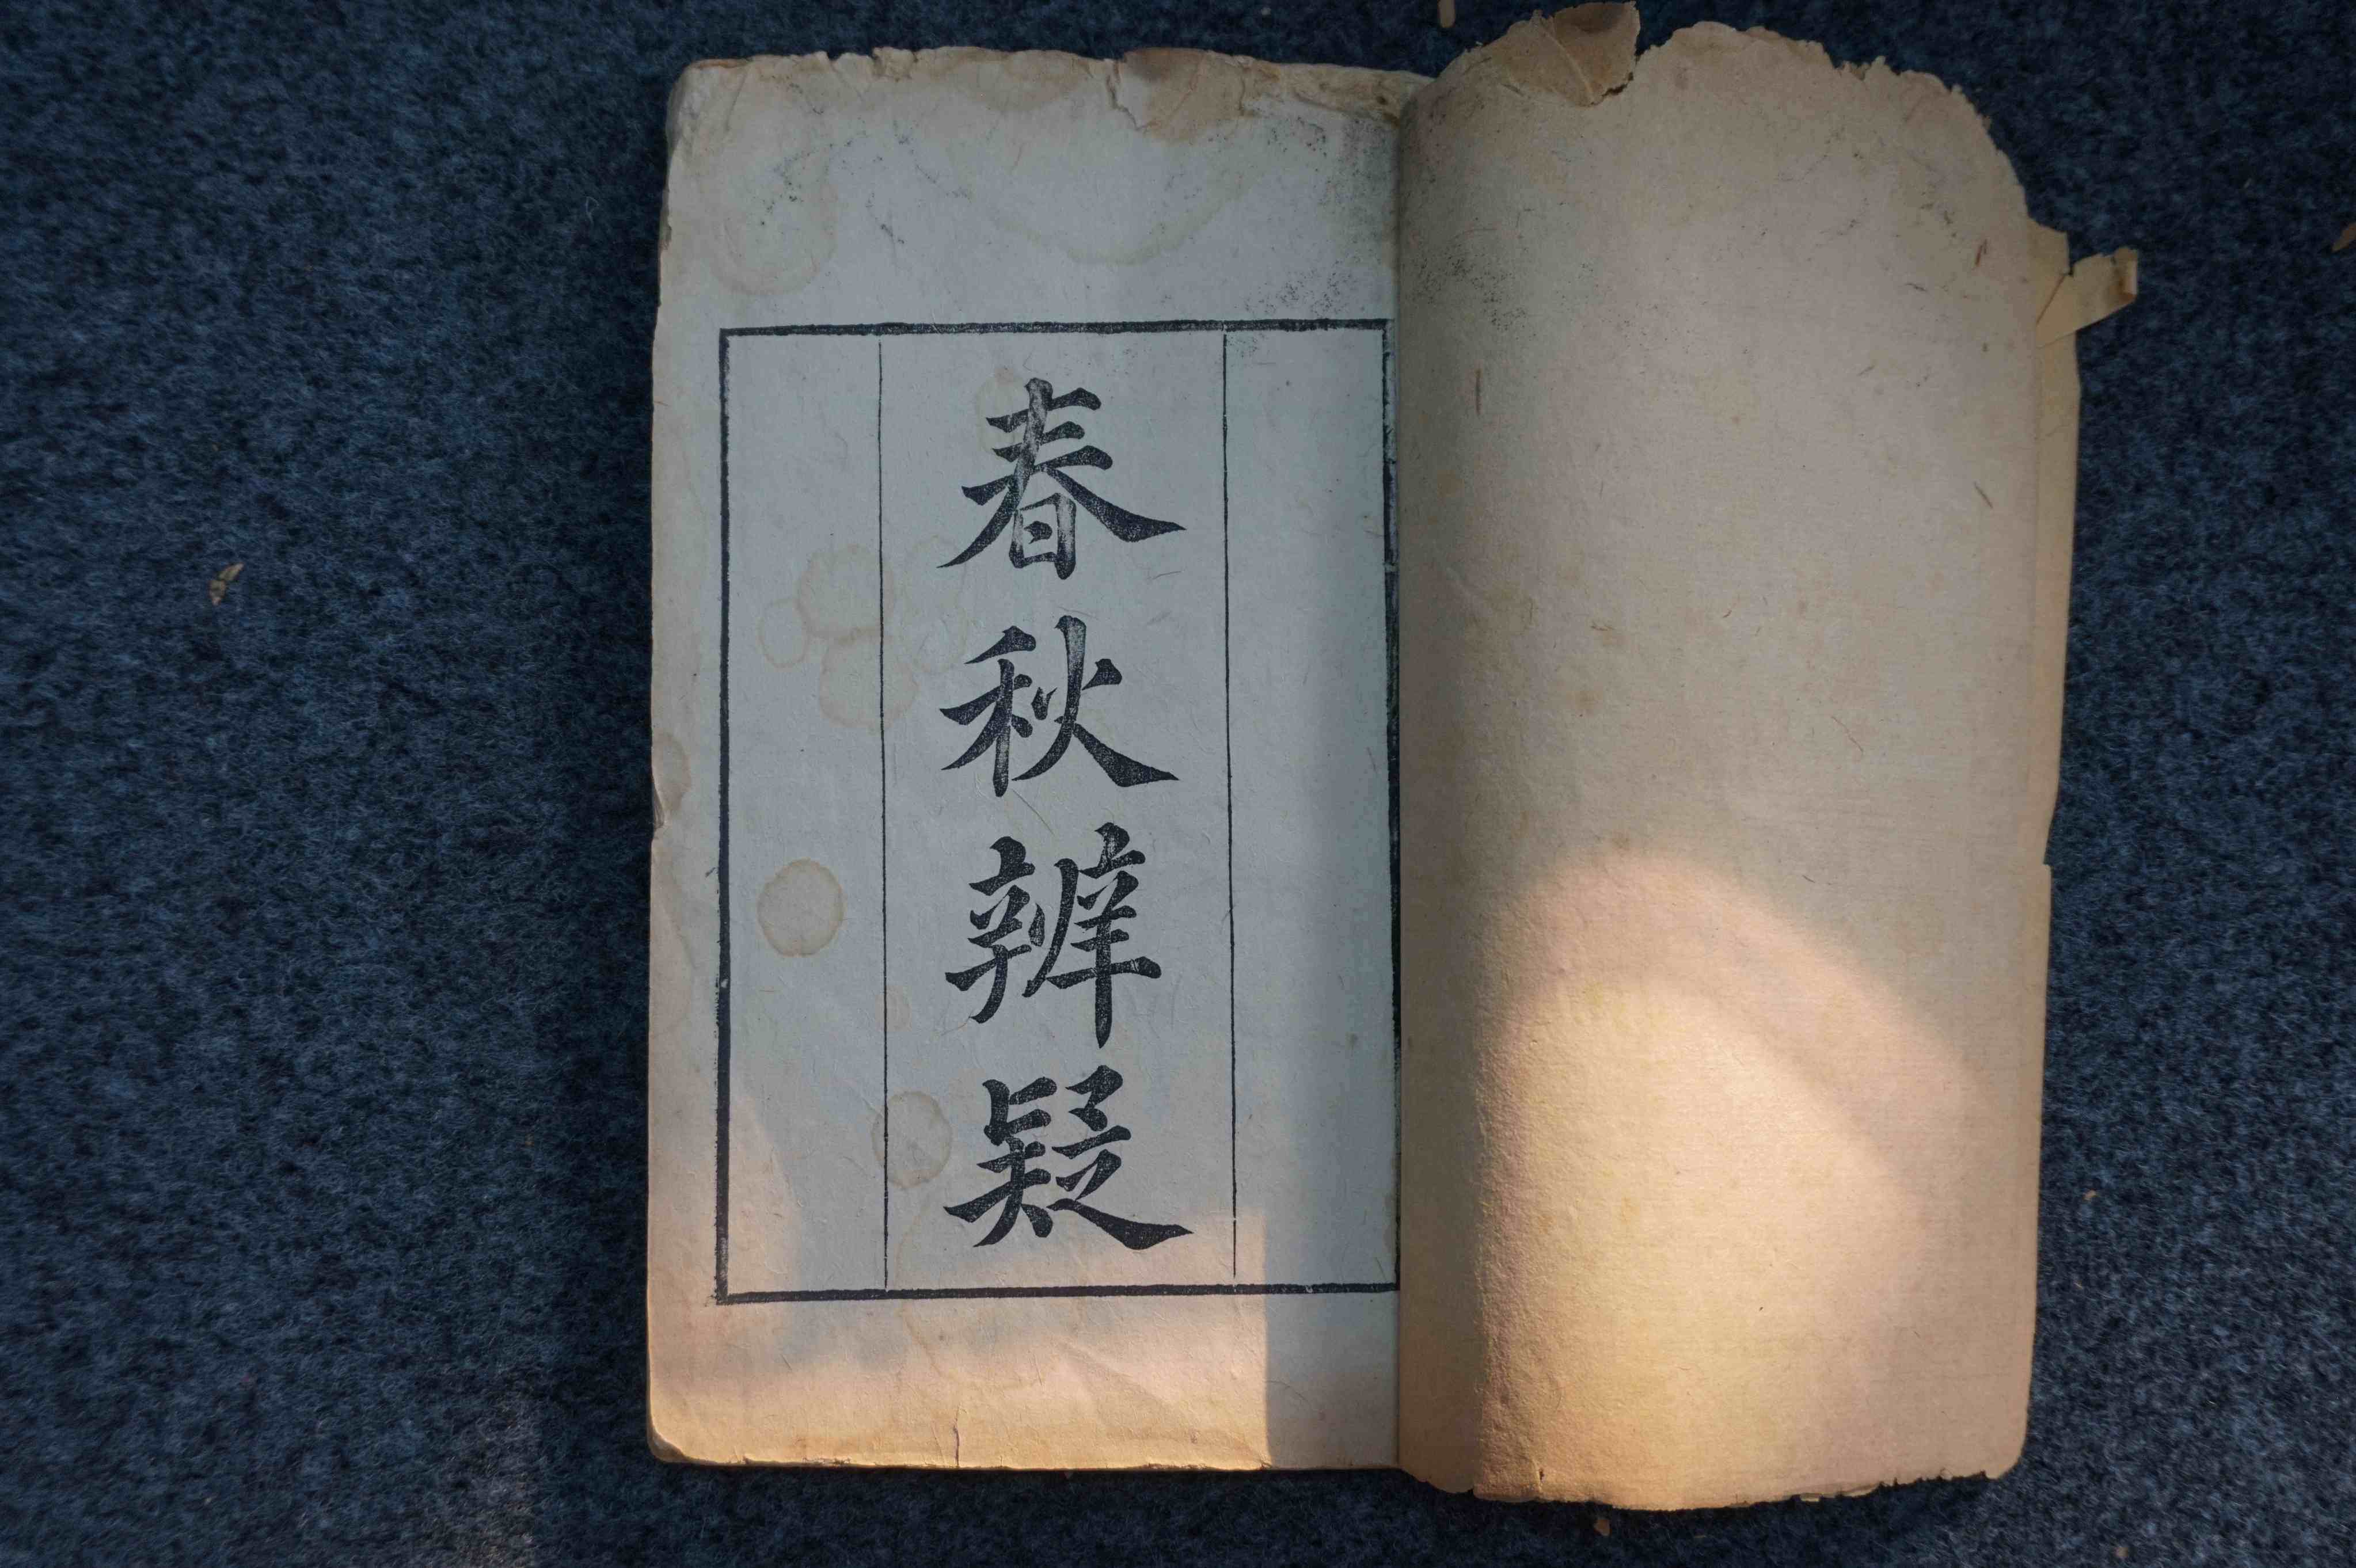 春秋辨疑